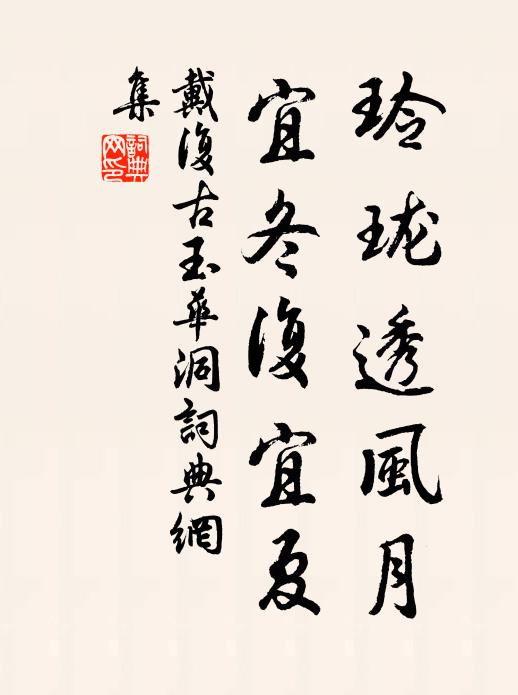 玲瓏透風月
宜冬復宜夏
戴復古玉華洞詞典網
集
詞典網印